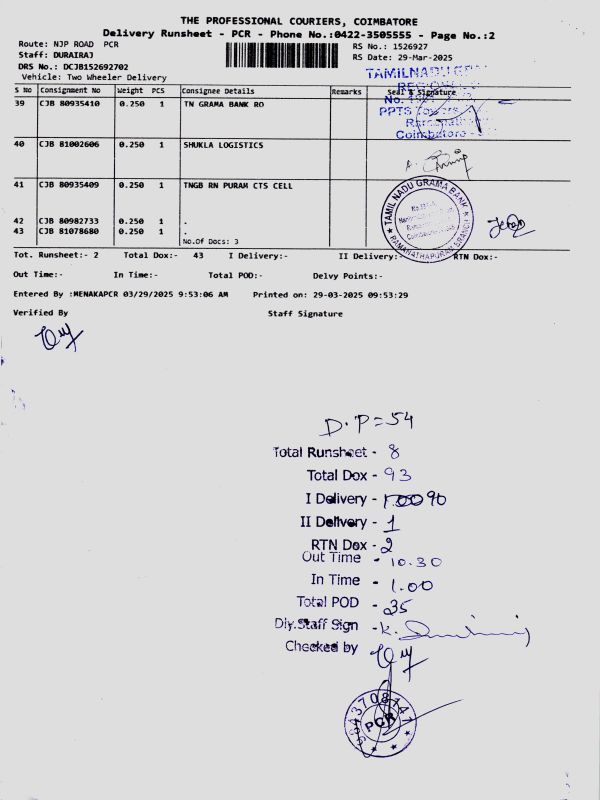 THE PROFESSIONAL COURIERS, COIMBATORE
Delivery Runsheet - PCR - Phone No.:0422-3505555 - Page No.:2
Route: NJP ROAD PCR
RS No.: 1526927
Staff: DURAIRAJ
RS Date: 29-Mar-2025
DRS No.: DCJB152692702
Vehicle: Two Wheeler Delivery
S No Consignment No Weight PCS Consignee Details Remarks Seal & Signature
39 CJB 80935410 0.250 1 TN GRAMA BANK RO
TAMILNADU
No.
PPTS Towers
Coimbatore
40 CJB 81002606 0.250 1 SHUKLA LOGISTICS
41 CJB 80935409 0.250 1 TNGB RN PURAM CTS CELL
TAMIL NADU GRAMA BANK
RAMANATHAPURAM BRANCH
42 CJB 80982733 0.250 1 .
43 CJB 81078680 0.250 1 .
No.Of Docs: 3
Tot. Runsheet:- 2 Total Dox:- 43 I Delivery:- II Delivery:- RTN Dox:-
Out Time:- In Time:- Total POD:- Delvy Points:-
Entered By :MENAKAPCR 03/29/2025 9:53:06 AM Printed on: 29-03-2025 09:53:29
Verified By Staff Signature
D.P=54
Total Runsheet - 8
Total Dox - 93
I Delivery - 90
II Delivery - 1
RTN Dox - 2
Out Time - 10.30
In Time - 1.00
Total POD - 35
Diy.Staff Sign - K.
Checked by
9843708747
PCR